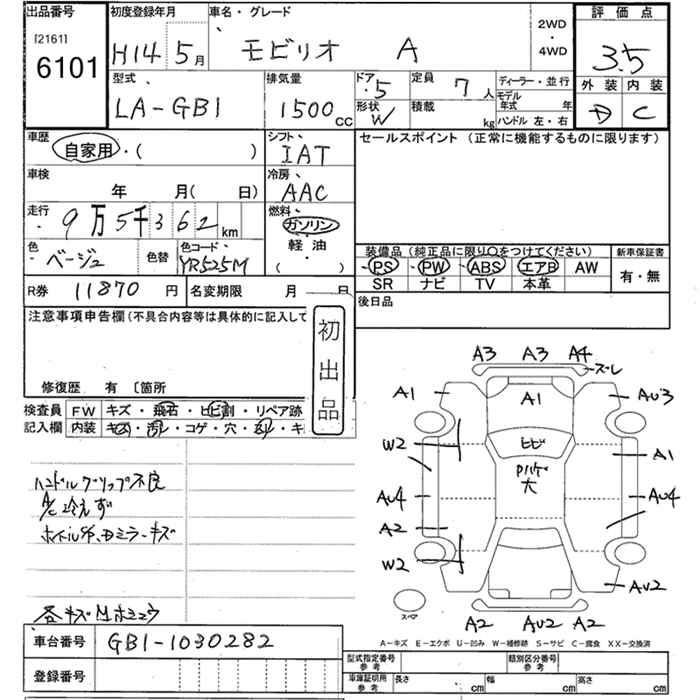 出品番号 初度登録年月 車名・グレード 評価点
[2161]
6101
H14 5月 モビリオ A
2WD
・
4WD
3.5
型式 排気量 ドア 定員 ディーラー・並行 外装 内装
LA-GB1 1500cc 5 7人 モデル年式 年
D C
形状 W 積載 kg ハンドル 左・右
車歴 自家用・( ) シフト セールスポイント (正常に機能するものに限ります)
IAT
車検 年 月(日) 冷房
AAC
走行 9万5千362km 燃料
ガソリン
軽油
( )
色 ベージュ 色替 色コード YR525M
装備品 (純正品に限り○をつけてください) 新車保証書
PS PW ABS エアB AW 有・無
SR ナビ TV 本革
R券 11870円 名変期限 月 日 後日品
注意事項申告欄(不具合内容等は具体的に記入して
初出品
修復歴 有 〔箇所
検査員 FW キズ・飛石・ヒビ割・リペア跡
記入欄 内装 キズ・汚レ・コゲ・穴・
ハンドルグリップ不良
A/C冷えず
各キズ
A3 A3 A4 ズレ
A1 A1 AU3
W2 ヒビ A1
大
AU4 AU4
A2
W2
AU2
スペア
A2 AU2 A2
A-キズ E-エクボ U-凹み W-補修跡 S-サビ C-腐食 XX-交換済
車台番号 GB1-1030282
登録番号
型式指定番号 参考 類別区分番号 参考
車庫証明用 参考 長さ cm 幅 cm 高さ cm